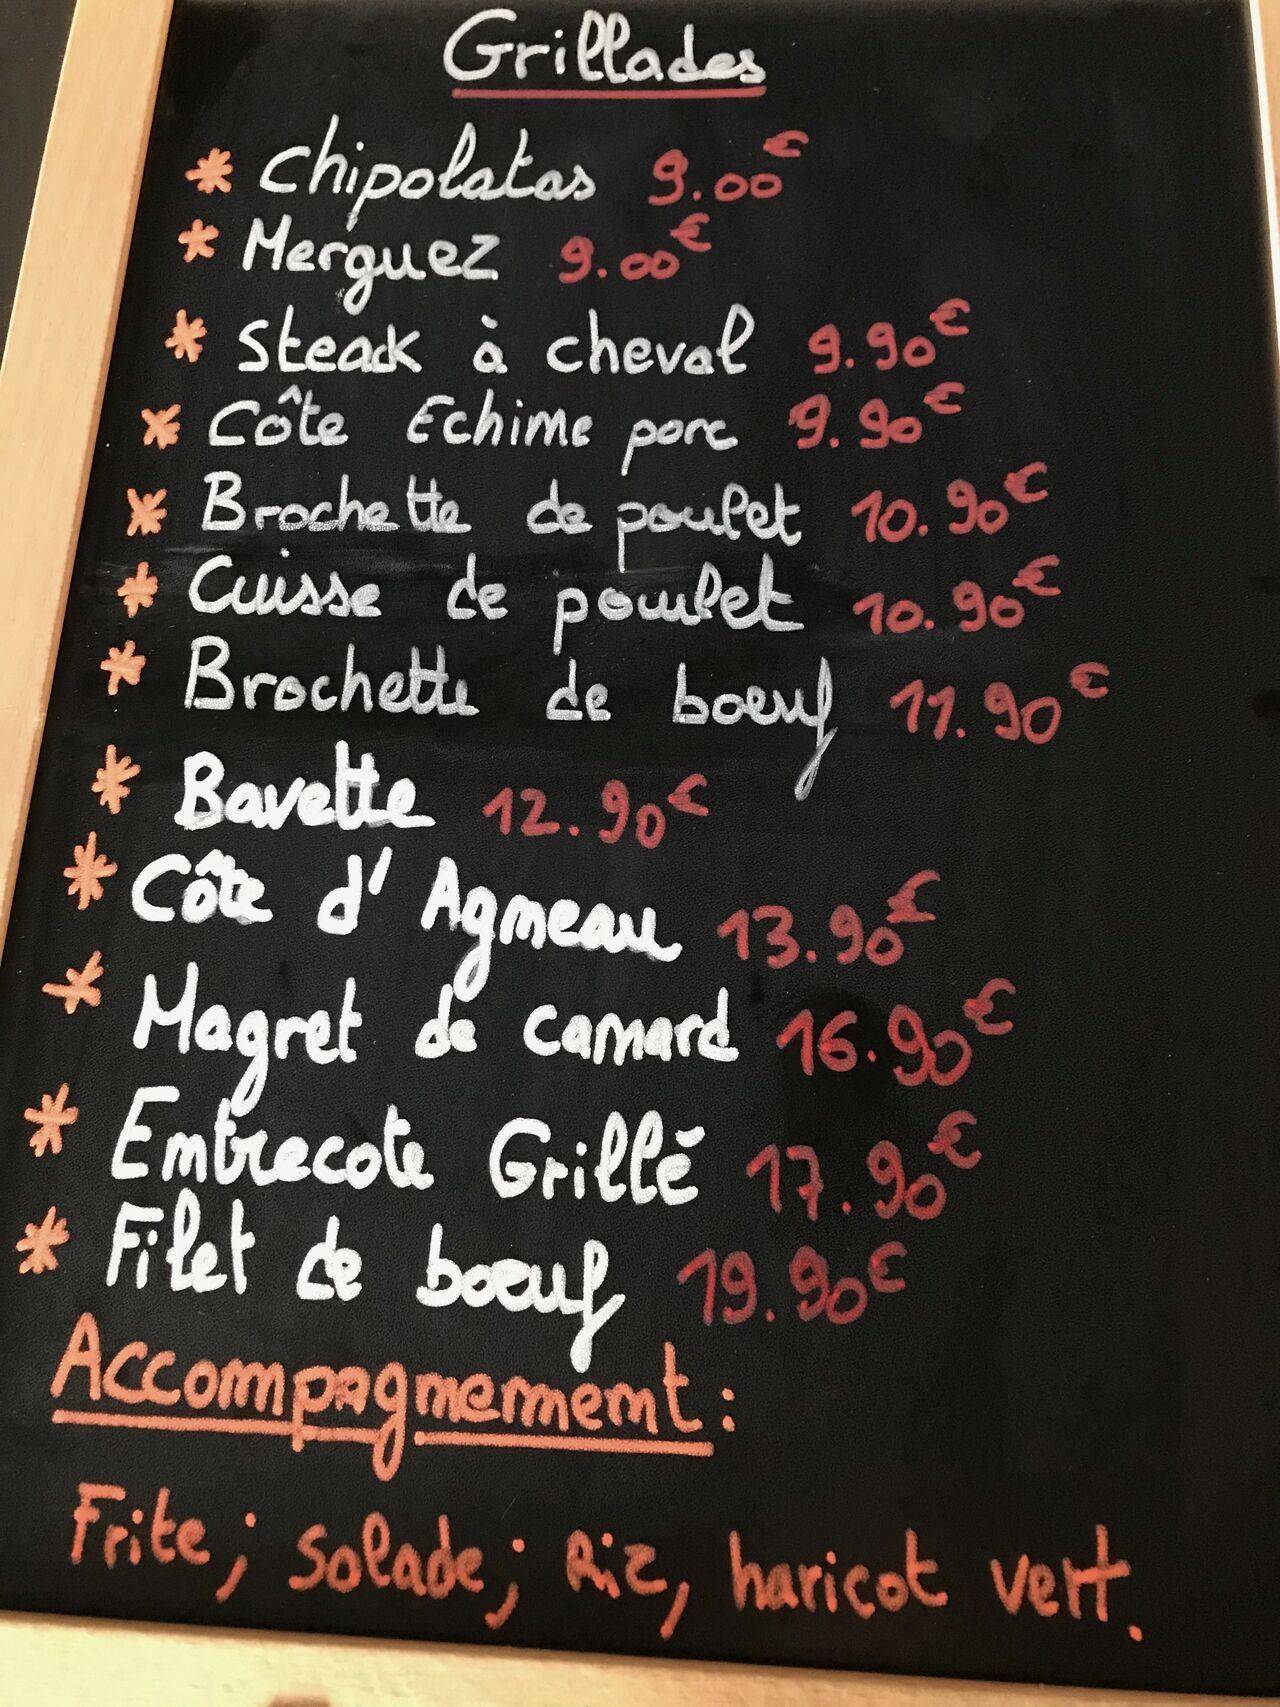 Grillades
* Chipolatas 9.00€
* Merguez 9.00€
* Steack à cheval 9.90€
* Côte Echine porc 9.90€
* Brochette de poulet 10.90€
* Cuisse de poulet 10.90€
* Brochette de boeuf 11.90€
* Bavette 12.90€
* Côte d'Agneau 13.90€
* Magret de canard 16.90€
* Entrecote Grillé 17.90€
* Filet de boeuf 19.90€
Accompagnement :
Frite ; Salade ; Riz, haricot vert.